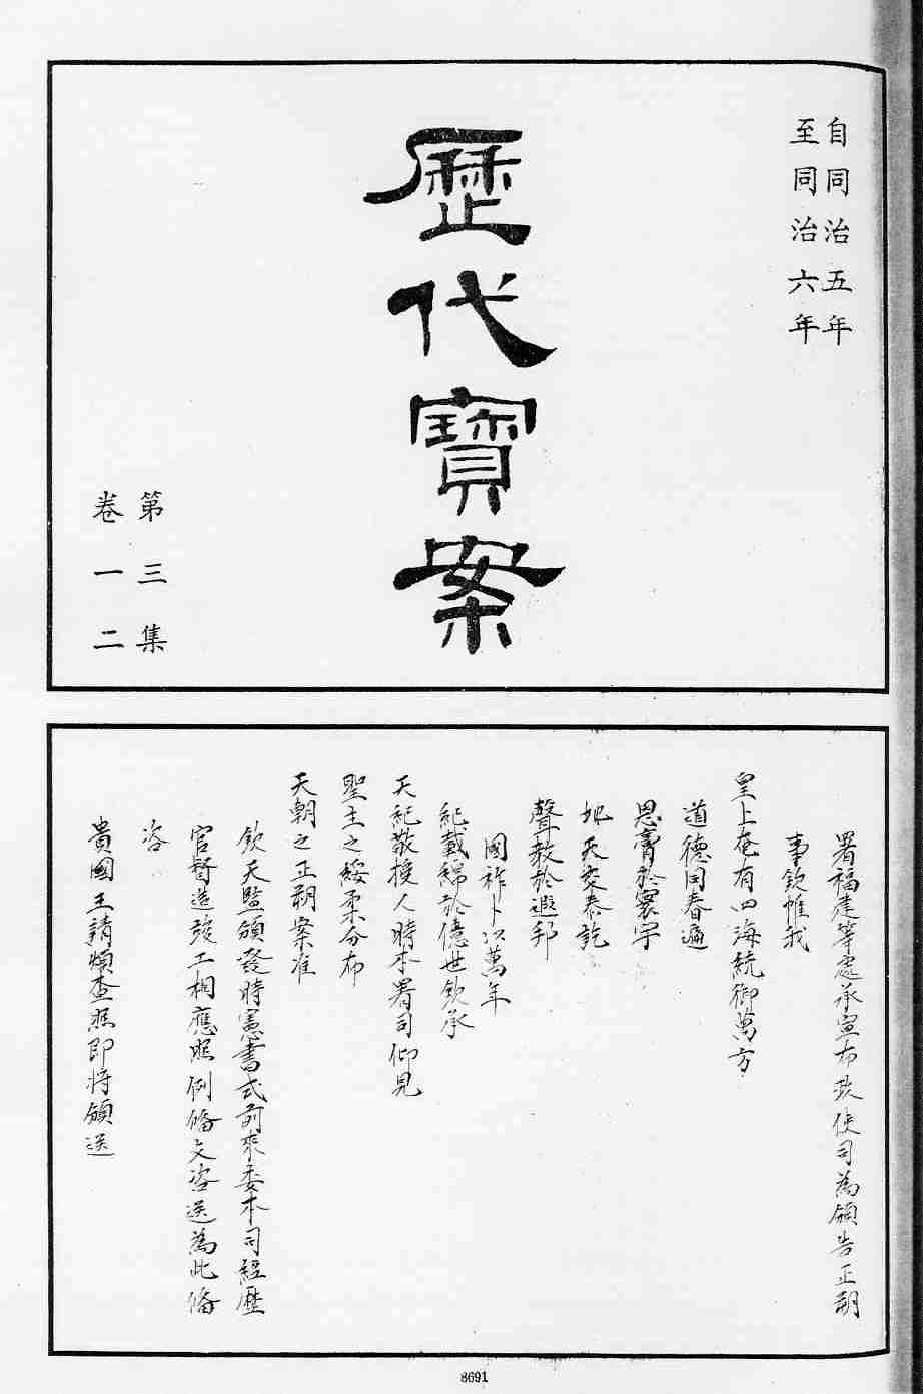 自同治五年
至同治六年
歷代寶案
第三集
卷一二
署福建等處承宣布政使司為頒告正朔
事欽惟我
皇上奄有四海統御萬方
道德同春遍
恩膏於寰宇
地天交泰訖
聲教於遐邦
國祚卜以萬年
紀載綿於億世欽承
天紀敬授人時本署司仰見
聖主之綏柔分布
天朝之正朔案准
欽天監頒發時憲書式前來委本司經歷
官督造竣工相應照例備文咨送為此備
咨
貴國王請煩查照即將頒送
8691